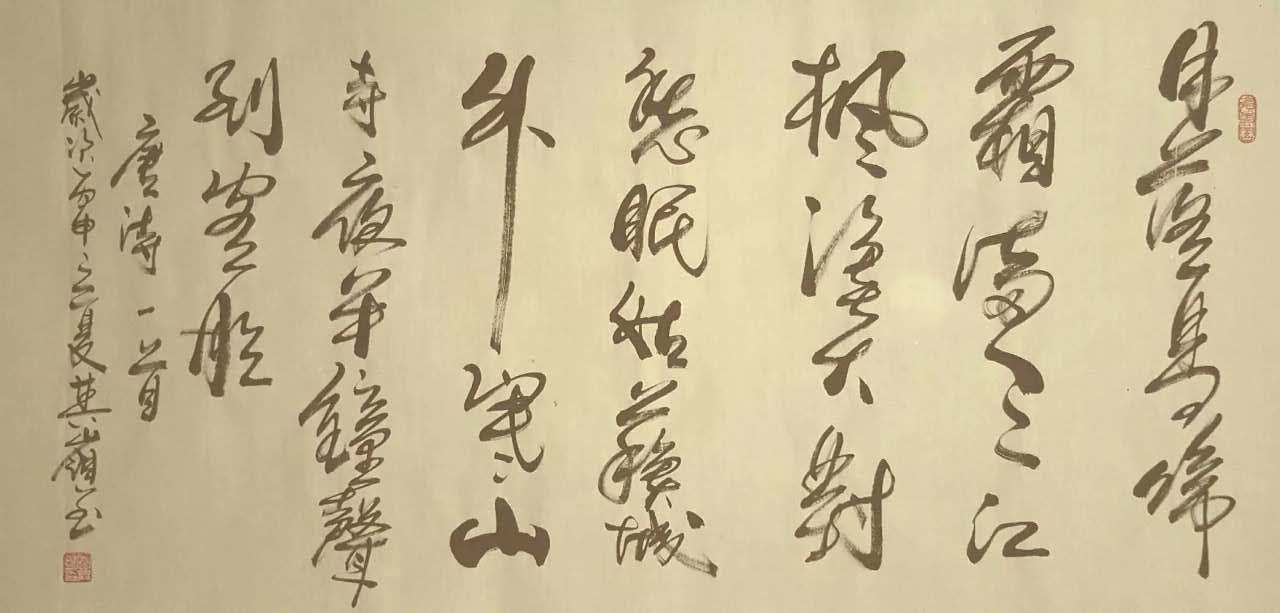 月落烏啼
霜滿天江
楓漁火對
愁眠姑蘇城
外寒山
寺夜半鐘聲
到客船
唐詩一首
歲次丙申之夏其嶺